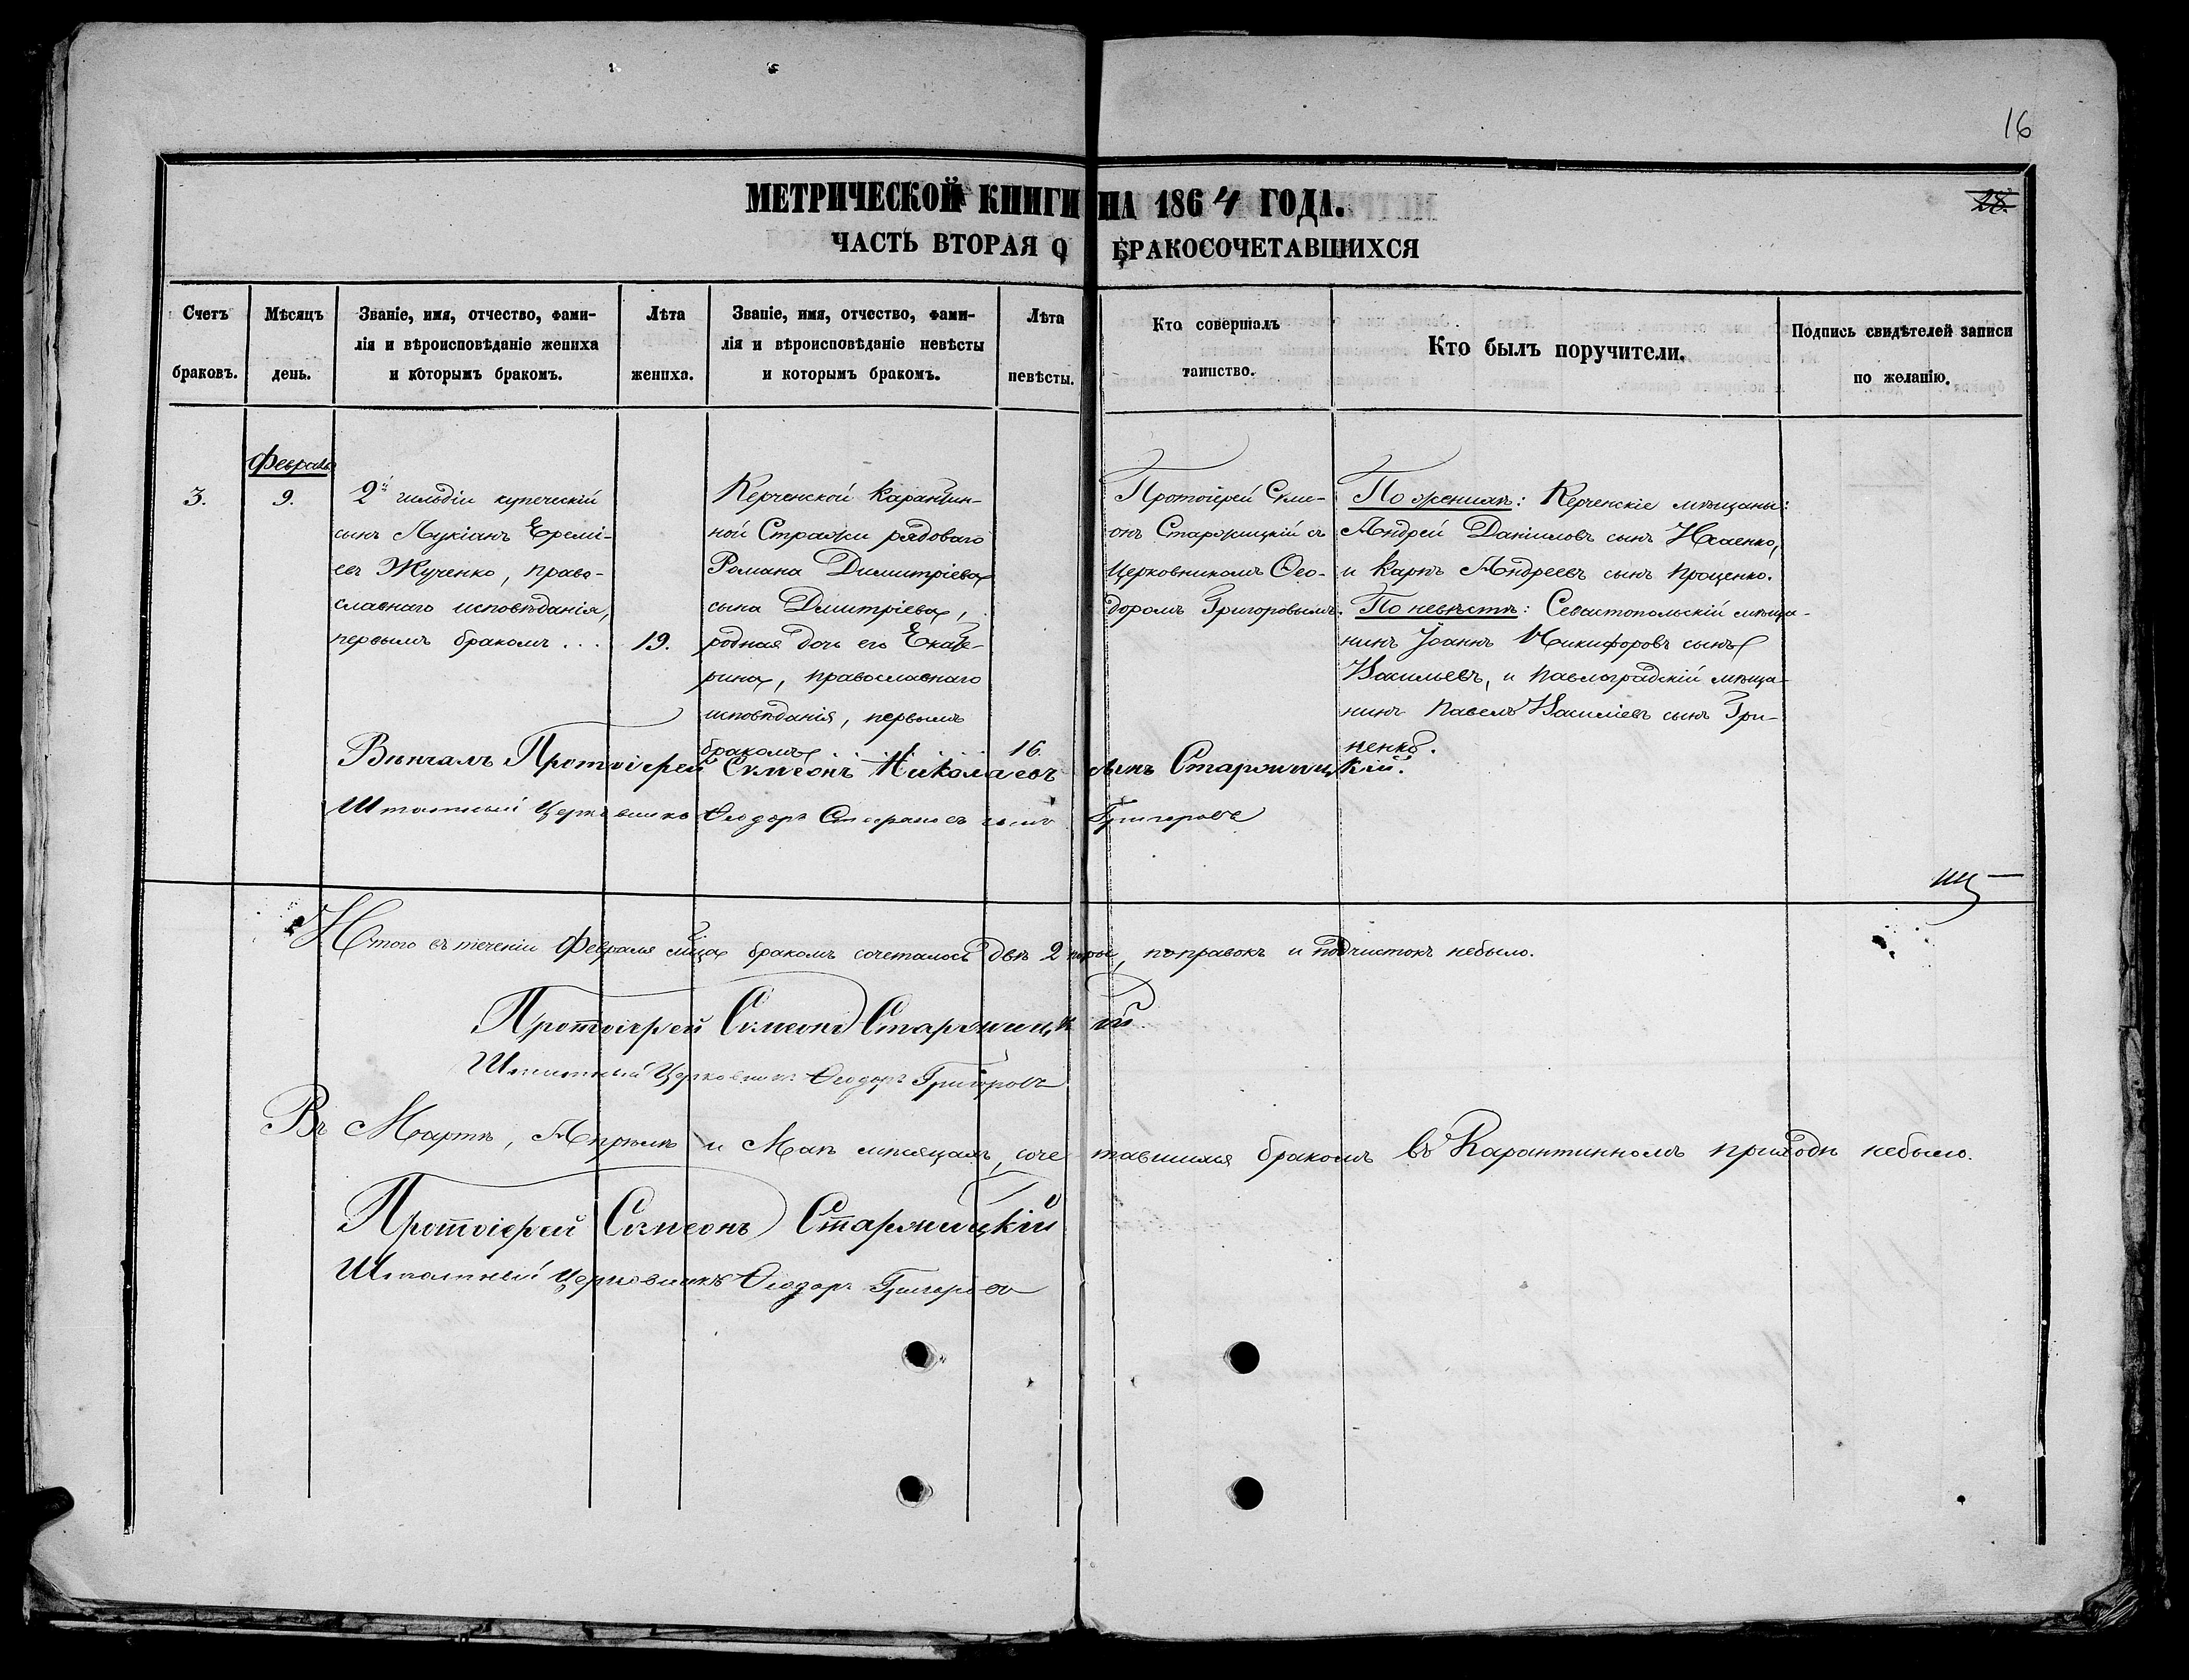 16
МЕТРИЧЕСКОЙ КНИГИ НА 1864 ГОДА.
28.
ЧАСТЬ ВТОРАЯ О БРАКОСОЧЕТАВШИХСЯ
Счетъ
браковъ.
Мѣсяцъ
день.
Званіе, имя, отчество, фами-
лія и вѣроисповѣданіе жениха
и которымъ бракомъ.
Лѣта
жениха.
Званіе, имя, отчество, фами-
лія и вѣроисповѣданіе невѣсты
и которымъ бракомъ.
Лѣта
невѣсты.
Кто совершалъ
таинство.
Кто былъ поручители.
Подпись свидѣтелей записи
по желанію.
3.
Февраль
9.
2й гильдіи купеческій
сынъ Лукіанъ Еремі-
евъ Жученко, право-
славнаго исповѣданія,
первымъ бракомъ ...
19.
Керченской Карантин-
ной Стражи рядоваго
Романа Димитріева
сына Дмитріева,
родная дочь его Екате-
рина, православнаго
исповѣданія, первымъ
бракомъ . . . . .
16
Протоіерей Симе-
онъ Старжицкій съ
Церковникомъ Ѳео-
доромъ Григоровымъ.
По женихѣ: Керченскіе мѣщаны:
Андрей Даніиловъ сынъ Исаенко,
и Карпъ Андреевъ сынъ Проценко.
По невѣстѣ: Севастопольскій мѣща-
нинъ Іоаннъ Никифоровъ сынъ
Васильевъ, и Павлоградскій мѣща-
нинъ Павелъ Василіевъ сынъ Гри-
ненко.
Вѣнчалъ Протоіерей Симеонъ Николаевъ сынъ Старжицкій.
Штатный Церковникъ Ѳеодоръ сынъ Григоровъ
Итого въ теченіи Февраля мѣца бракомъ сочеталось двѣ 2 пары, поправокъ и подчистокъ небыло.
Протоіерей Симеонъ Старжицкій.
Штатный Церковникъ Ѳеодоръ Григоровъ
Въ Мартѣ, Апрѣлѣ и Маѣ мѣсяцахъ, сочетавшихся бракомъ въ Карантинномъ приходѣ небыло.
Протоіерей Симеонъ Старжицкій
Штатный Церковникъ Ѳеодоръ Григоровъ